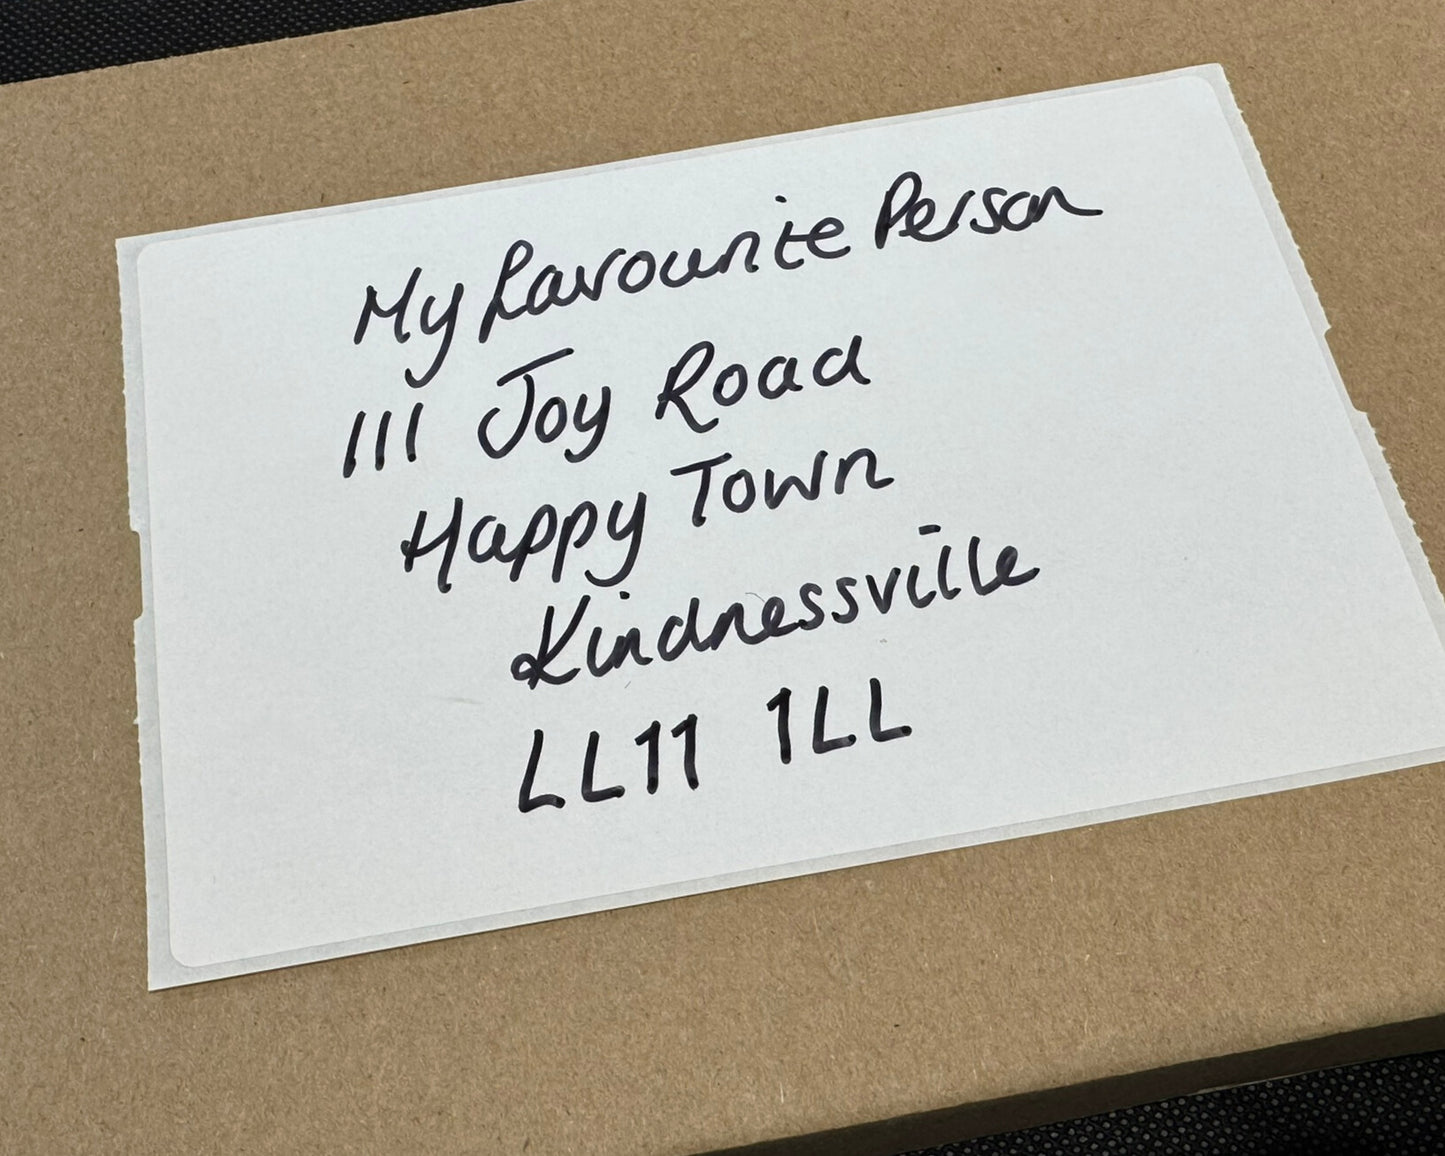 My favourite Person
111 Joy Road
Happy Town
Kindnessville
LL11 1LL